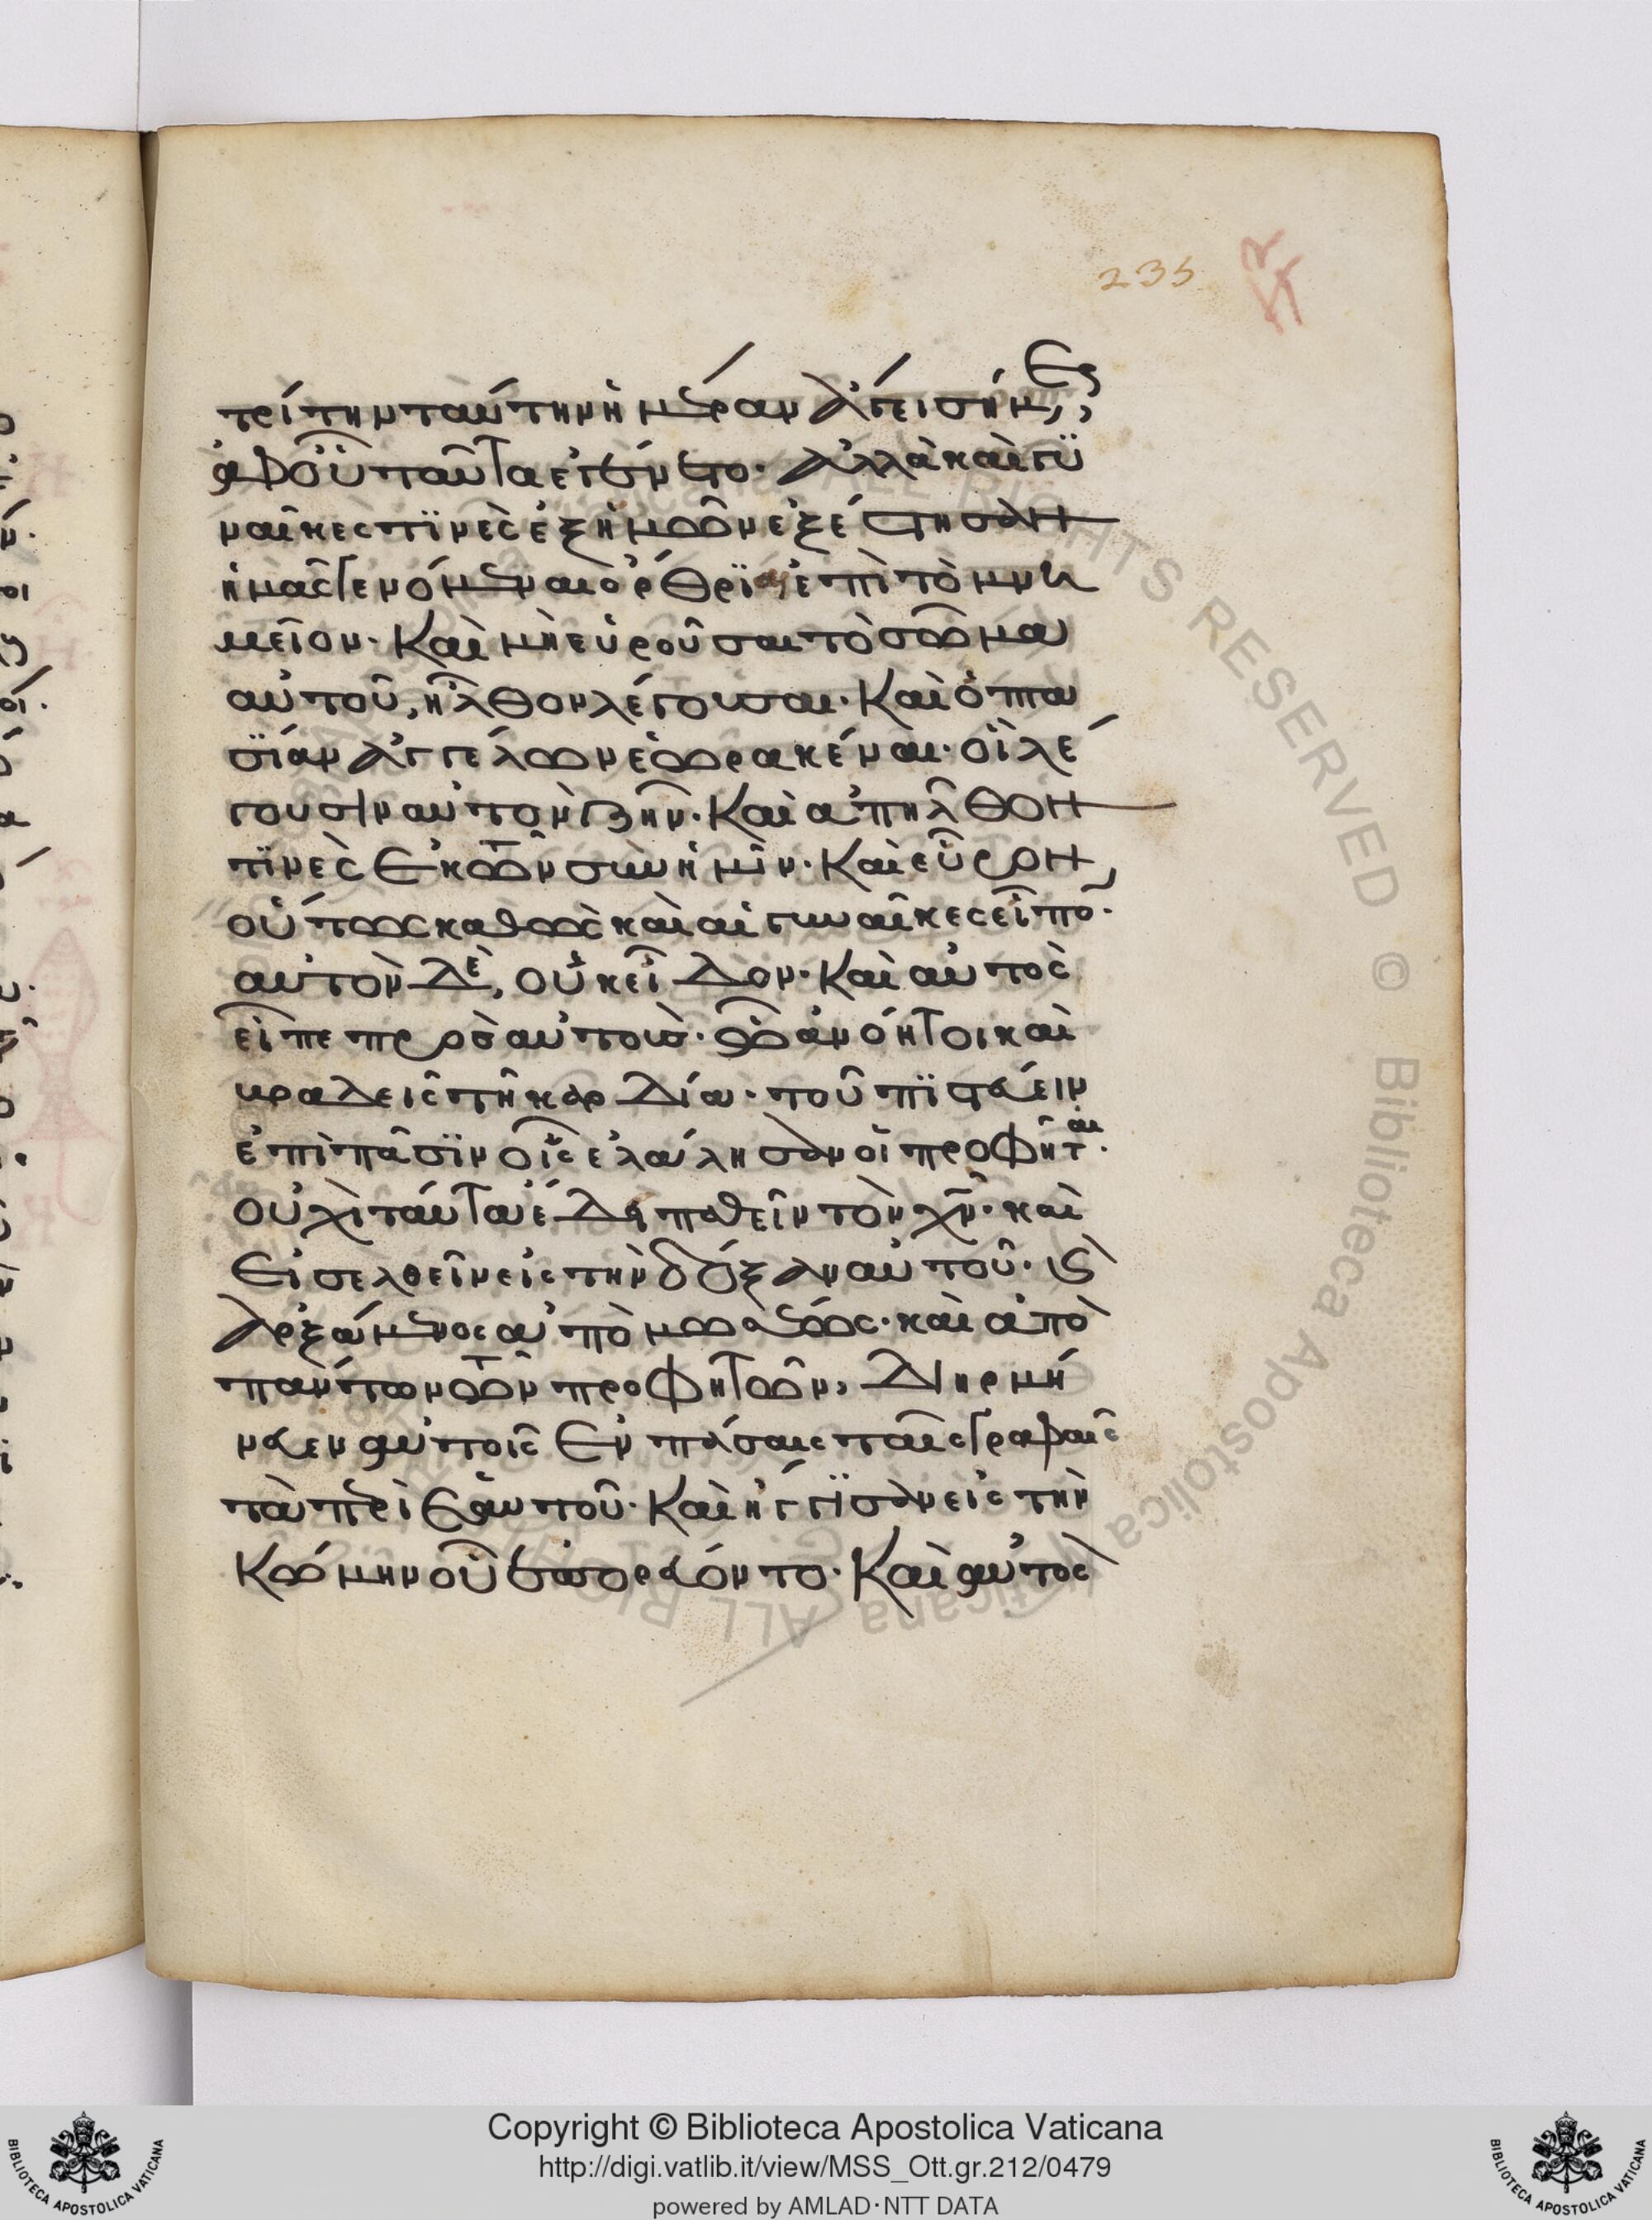 235
τρίτην ταύτην ἡμέραν ἄγει σήμερ,
ἀφ οὗ ταῦτα ἐγένετο· ἀλλὰ καὶ γυ
ναῖκες τινὲς ἐξ ἡμῶν ἐξέστησαν
ἡμᾶς γενόμεναι ὄρθριαι ἐπὶ τὸ μνη
μεῖον· Καὶ μὴ εὑροῦσαι τὸ σῶμα
αὐτοῦ, ἦλθον λέγουσαι· Καὶ ὀπτα
σίαν ἀγγέλων ἑωρακέναι· οἳ λέ
γουσιν αὐτὸν ζῆν. Καὶ ἀπῆλθον
τινὲς ἐκ τῶν σὺν ἡμῖν· Καὶ εὗρον
οὕτως καθὼς καὶ αἱ γυναῖκες εἶπο·
αὐτὸν δὲ, οὐκ εἶδον· Καὶ αὐτὸς
εἶπε πρὸς αὐτοὺς· ὦ ἀνόητοι καὶ
βραδεῖς τῇ καρδία· τοῦ πιστεύειν
ἐπὶ πᾶσιν οἷς ἐλάλησαν οἱ προφῆται·
οὐχὶ ταῦτα ἔδει παθεῖν τὸν χν· καὶ
εἰσελθεῖν εἰς τὴν δόξαν αὐτοῦ· κ
ἀρξάμενος ἀπὸ μωσέως· καὶ ἀπὸ
πάντων τῶν προφητῶν, διηρμή
νευεν αὐτοῖς ἐν πάσαις ταῖς γραφαῖς
τὰ περὶ ἑαυτοῦ· Καὶ ἤγγισαν εἰς τὴν
Κώμην οὗ ἐπορεύοντο· Καὶ αὐτὸς
ALL RIGHTS RESERVED © Biblioteca Apostolica Vaticana
Copyright © Biblioteca Apostolica Vaticana
http://digi.vatlib.it/view/MSS_Ott.gr.212/0479
powered by AMLAD·NTT DATA
BIBLIOTECA APOSTOLICA VATICANA
BIBLIOTECA APOSTOLICA VATICANA